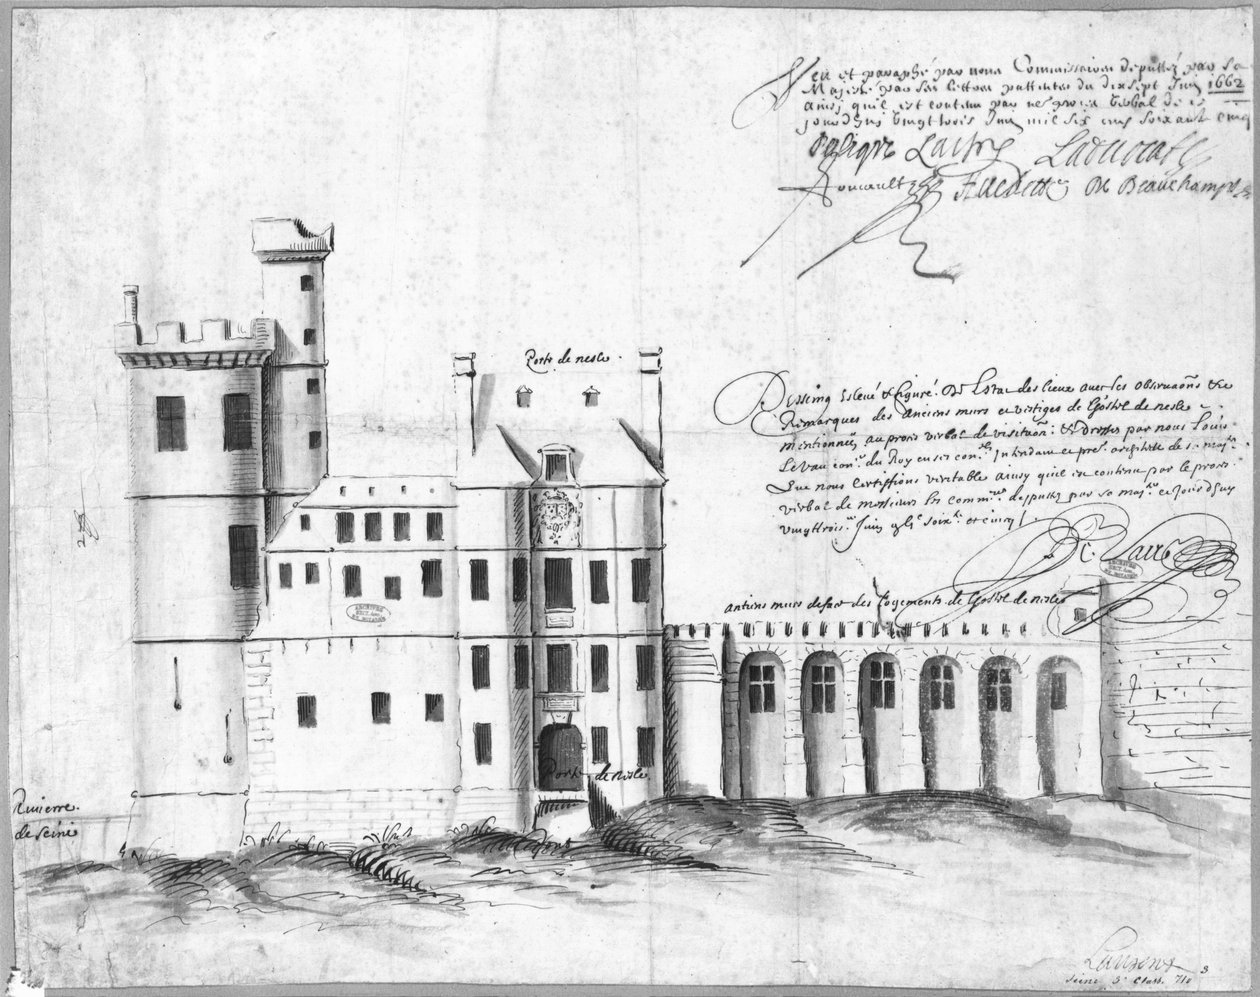 Veu et paraphé par nous Commissaires deputtez par Sa
Majesté par ses lettres pattentes du dixsept Juin 1662
ainsy qu'il est contenu par nostre procés verbal de ce
jourdhuy vingt trois Juin mil six cens soixant cinq
Laisné Ladvocat
Foucault De Beauchamps
Porte de nesle.
Dessing Eslevé & figuré. De L'estat des lieux avec les observaōns & et
Remarques des anciens murs et vistiges de L'hostel de nesle
mentionnez, au procés verbal de visitaōn: & dressés par nous Louis
Levau conr. du Roy en ses conls. Intendant et pr. architecte de sa majté.
Que nous certiffions veritable ainsy qu'il est contenu par le procés
verbal de messieurs les commres. desputtez par sa majté. ce jourdhuy
vingttroise. Juin 
Le Vau
antiens murs de face des Logements de L'hostel de nesle
Porte de nesle.
Rivierre
de seine
ARCHIVES
SECT. dom.
ARCHIVES
SECT. dom.
Seine 3e Class. 710
3